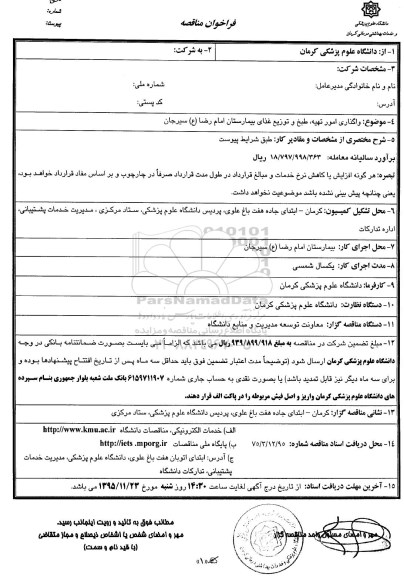 شماره:
پیوست:
فراخوان مناقصه
دانشگاه علوم پزشکی
و خدمات بهداشتی درمانی کرمان
۱- از: دانشگاه علوم پزشکی کرمان
۲- به شرکت:
۳- مشخصات شرکت:
نام و نام خانوادگی مدیرعامل:
شماره ملی:
آدرس:
کد پستی:
۴- موضوع: واگذاری امور تهیه، طبخ و توزیع غذای بیمارستان امام رضا (ع) سیرجان
۵- شرح مختصری از مشخصات و مقادیر کار: طبق شرایط پیوست
برآورد سالیانه معامله: ۱۸/۷۹۷/۹۹۸/۳۶۳ ریال
تبصره: هر گونه افزایش یا کاهش نرخ خدمات و مبالغ قرارداد در طول مدت قرارداد صرفاً در چارچوب و بر اساس مفاد قرارداد خواهد بود،
یعنی چنانچه پیش بینی نشده باشد موضوعیت نخواهد داشت.
۶- محل تشکیل کمیسیون: کرمان – ابتدای جاده هفت باغ علوی، پردیس دانشگاه علوم پزشکی، ستاد مرکزی - مدیریت خدمات پشتیبانی،
اداره تدارکات
۷- محل اجرای کار: بیمارستان امام رضا (ع) سیرجان
۸- مدت اجرای کار: یکسال شمسی
۹- کارفرما: دانشگاه علوم پزشکی کرمان
۱۰- دستگاه نظارت: دانشگاه علوم پزشکی کرمان
۱۱- دستگاه مناقصه گزار: معاونت توسعه مدیریت و منابع دانشگاه
۱۲- مبلغ تضمین شرکت در مناقصه به مبلغ ۹۳۹/۸۹۹/۹۱۸ ریال می باشد که الزاماً می بایست بصورت ضمانتنامه بانکی در وجه
دانشگاه علوم پزشکی کرمان ارسال شود (توضیحاً مدت اعتبار تضمین فوق باید حداقل سه ماه پس از تاریخ افتتاح پیشنهادها بوده و
برای سه ماه دیگر نیز قابل تمدید باشد) یا بصورت نقدی به حساب جاری شماره ۶۱۵۹۷۱۱۹۰۷ بانک ملت شعبه بلوار جمهوری بنام سپرده
های دانشگاه علوم پزشکی کرمان واریز و اصل فیش مربوطه را در پاکت الف قرار دهند.
۱۳- نشانی مناقصه گزار: کرمان – ابتدای جاده هفت باغ علوی، پردیس دانشگاه علوم پزشکی، ستاد مرکزی
۱۴- محل دریافت اسناد مناقصه شماره: ۷۵/۳/۱۲/۹۵
الف) خدمات الکترونیکی، مناقصات دانشگاه http://www.kmu.ac.ir
ب) پایگاه ملی مناقصات http://iets.mporg.ir
ج) آدرس: ابتدای اتوبان هفت باغ علوی، دانشگاه علوم پزشکی، مدیریت خدمات
پشتیبانی، تدارکات دانشگاه
۱۵- آخرین مهلت دریافت اسناد: از تاریخ درج آگهی لغایت ساعت ۱۴:۳۰ روز شنبه مورخ ۱۳۹۵/۱۱/۲۳ می باشد.
مطالب فوق به تائید و رویت اینجانب رسید.
مهر و امضای شخص یا اشخاص ذیصلاح و مجاز متقاضی
(با قید نام و سمت)
مهر و امضای مسئول واحد مناقصه گزار